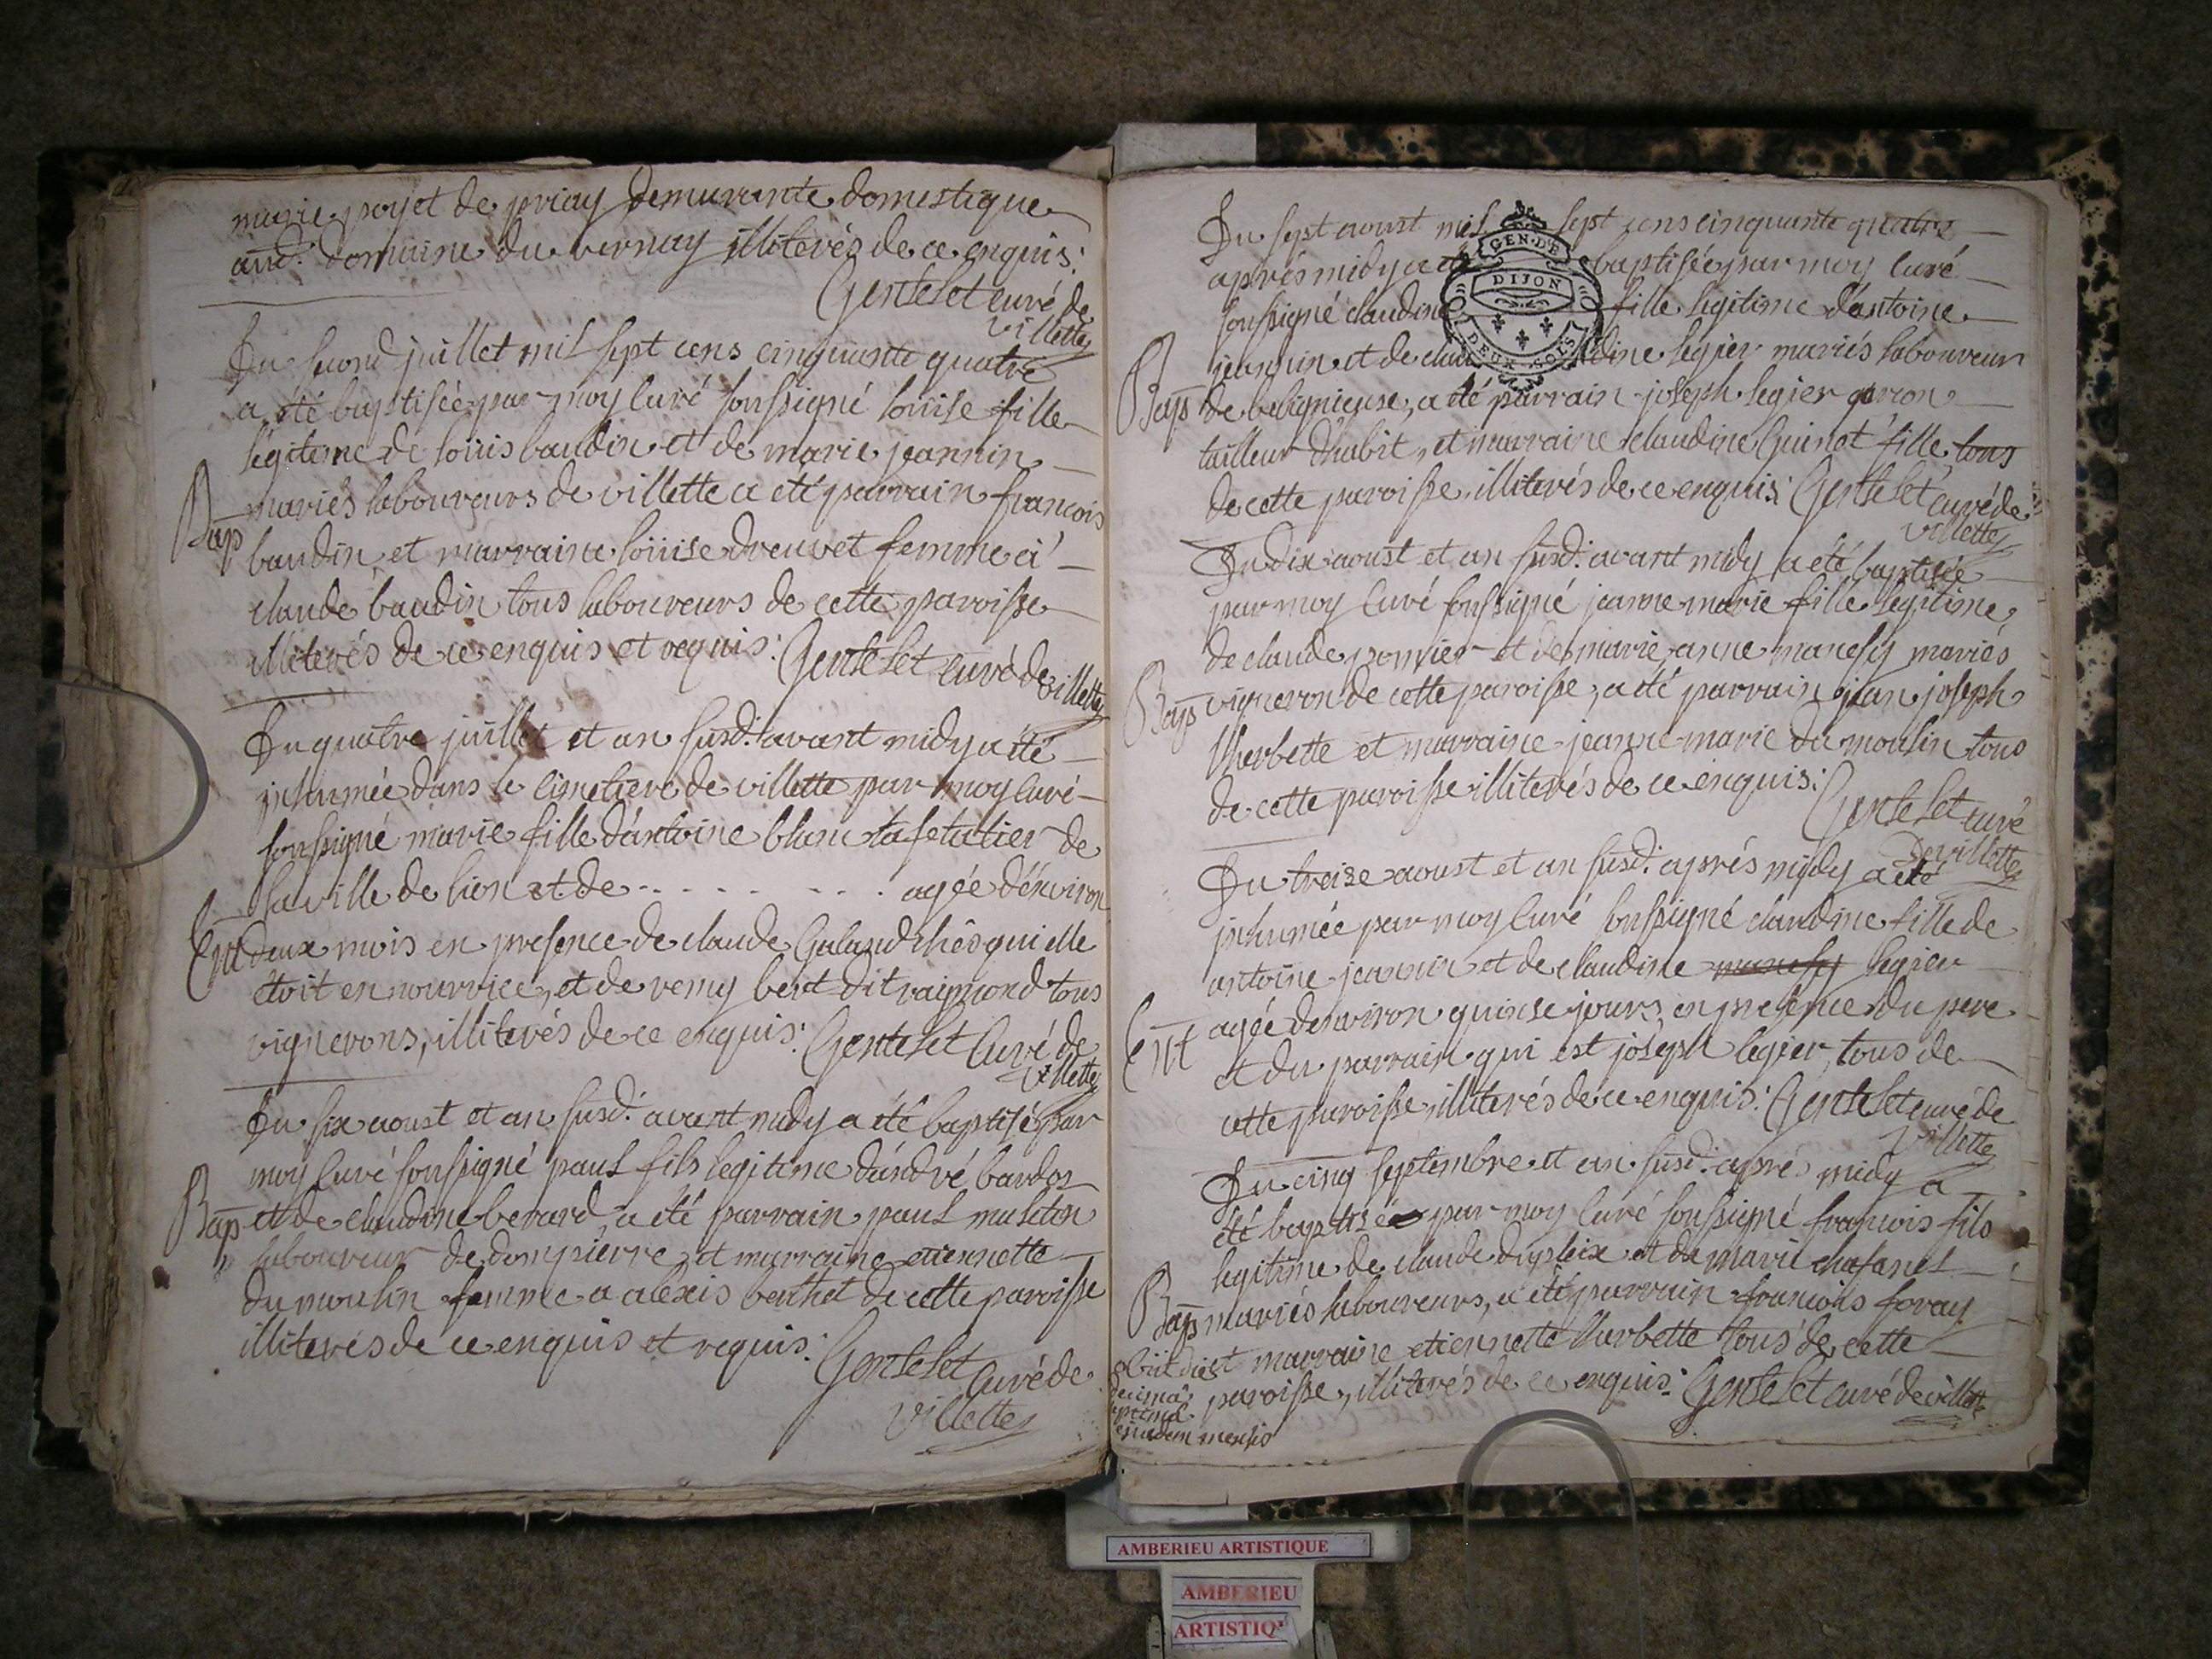 marie poyet de priay demurante domestique
aud: domaine du vernay illiterés de ce enquis:
Genteset curé de
villette
Du second juillet mil sept cens cinquante quatre
a été baptisée par moy curé soussigné louise fille
légitime de louis baudin et de marie jeannin
Bap mariés laboureurs de villette a été parrain francois
baudin et marraine louise dreuvet femme à
claude baudin tous laboureurs de cette paroisse
illiterés de ce enquis et requis: Genteset curé de villette
Du quatre juillet et an susd: avant midy a été
inhumée dans le cimetiere de villette par moy curé
soussigné marie fille d'antoine blanc tafetatier de
la ville de lion et de - - - - - - - . agée d'environ
Ent deux mois en presence de claude Galand chès qui elle
étoit en nourrice, et de remy bert dit raimond tous
vignerons, illiterés de ce enquis: Genteset Curé de
villette
Du six aoust et an susd: avant midy a été baptisé par
moy curé soussigné paul fils legitime d'andré bardos
Bap et de claudine berard a été parrain paul museton
laboureur de dompierre, et marraine etiennette
du moulin femme a alexis berthet de cette paroisse
illiterés de ce enquis et requis: Genteset curé de
villette
Du sept aoust mil sept cens cinquante quatre
après midy a été baptisée par moy curé
soussigné claudine fille legitime d'antoine
jeannin et de claudine legier mariés laboureur
Bap de belignieuse, a été parrain joseph legier garcon
tailleur d'habit, et marraine claudine Guinet fille tous
de cette paroisse illiterés de ce enquis: Genteset curé de
villette
GEN. DE
DIJON
DEUX SOLS
Du dix aoust et an susd: avant midy a été baptisée
par moy curé soussigné jeanne marie fille legitime
de claude pomier et de marie anne manessy mariés
Bap vigneron de cette paroisse, a été parrain jean joseph
lherbette et marraine jeanne marie du moulin tous
de cette paroisse illiterés de ce enquis: Genteset curé
de villette
Du treise aoust et an susd: après midy a été
inhumée par moy curé soussigné claudine fille de
antoine jeannin et de claudine manessy legier
Ent agée d'environ quinse jours, en presence du pere
et du parrain qui est joseph legier, tous de
cette paroisse illiterés de ce enquis: Genteset curé de
villette
Du cinq septembre et an susd: après midy a
été baptisé par moy curé soussigné francois fils
legitime de claude dupleix et de marie chasanel
Bap mariés laboureurs, a été parrain francois foray
et marraine etiennette lherbette tous de cette
paroisse, illiterés de ce enquis: Genteset curé de villette
obiit die
decima
septima
ejusdem mensis
AMBERIEU ARTISTIQUE
AMBERIEU
ARTISTIQ